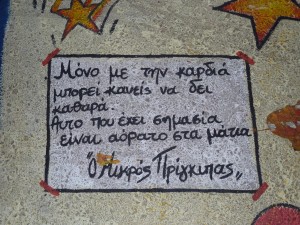 Μόνο με την καρδιά
μπορεί κανείς να δει
καθαρά.
Αυτο που έχει σημασία
είναι αόρατο στα μάτια
"Ο Μικρός Πρίγκιπας"